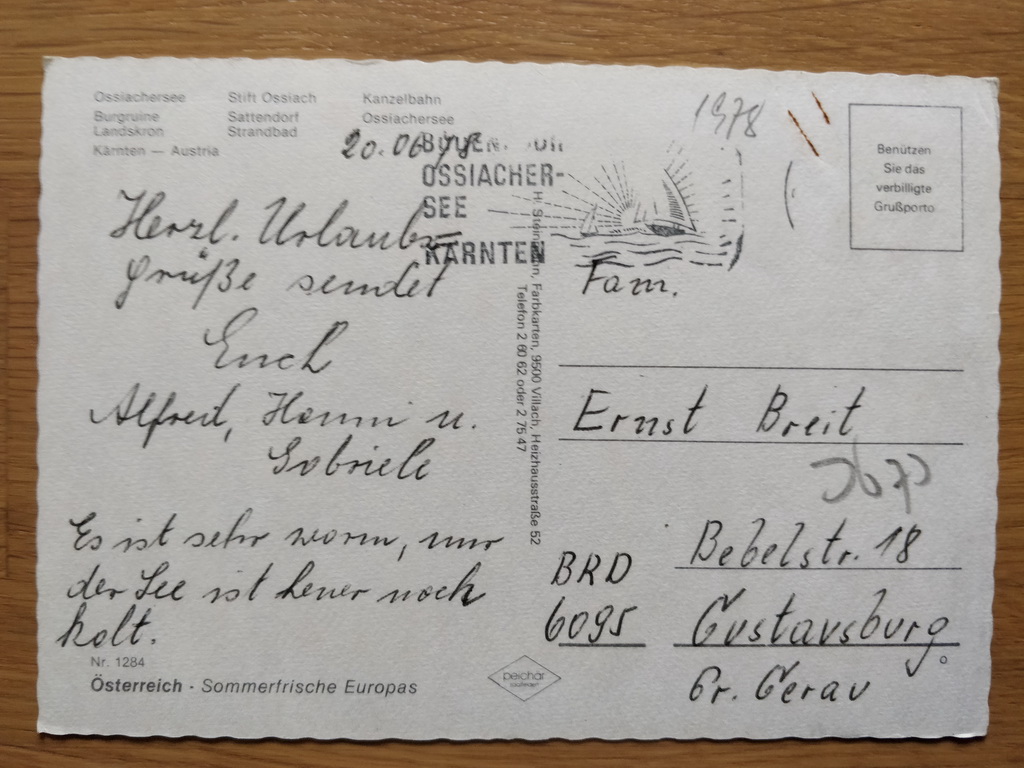 Ossiachersee Stift Ossiach Kanzelbahn
Burgruine Sattendorf Ossiachersee
Landskron Strandbad
Kärnten — Austria
20.06.78
1978
OSSIACHER-
SEE
KÄRNTEN
Benützen
Sie das
verbilligte
Grußporto
Herzl. Urlaubs=
grüße sendet
Euch
Alfred, Hanni u.
Gabriele
Es ist sehr warm, nur
der See ist heuer noch
kalt.
Nr. 1284
Österreich · Sommerfrische Europas
Farbkarten, 9500 Villach, Heizhausstraße 52
Telefon 2 60 62 oder 2 75 47
peichär
Fam.
Ernst Breit
Bebelstr. 18
BRD
6095 Gustavsburg
Gr. Gerau